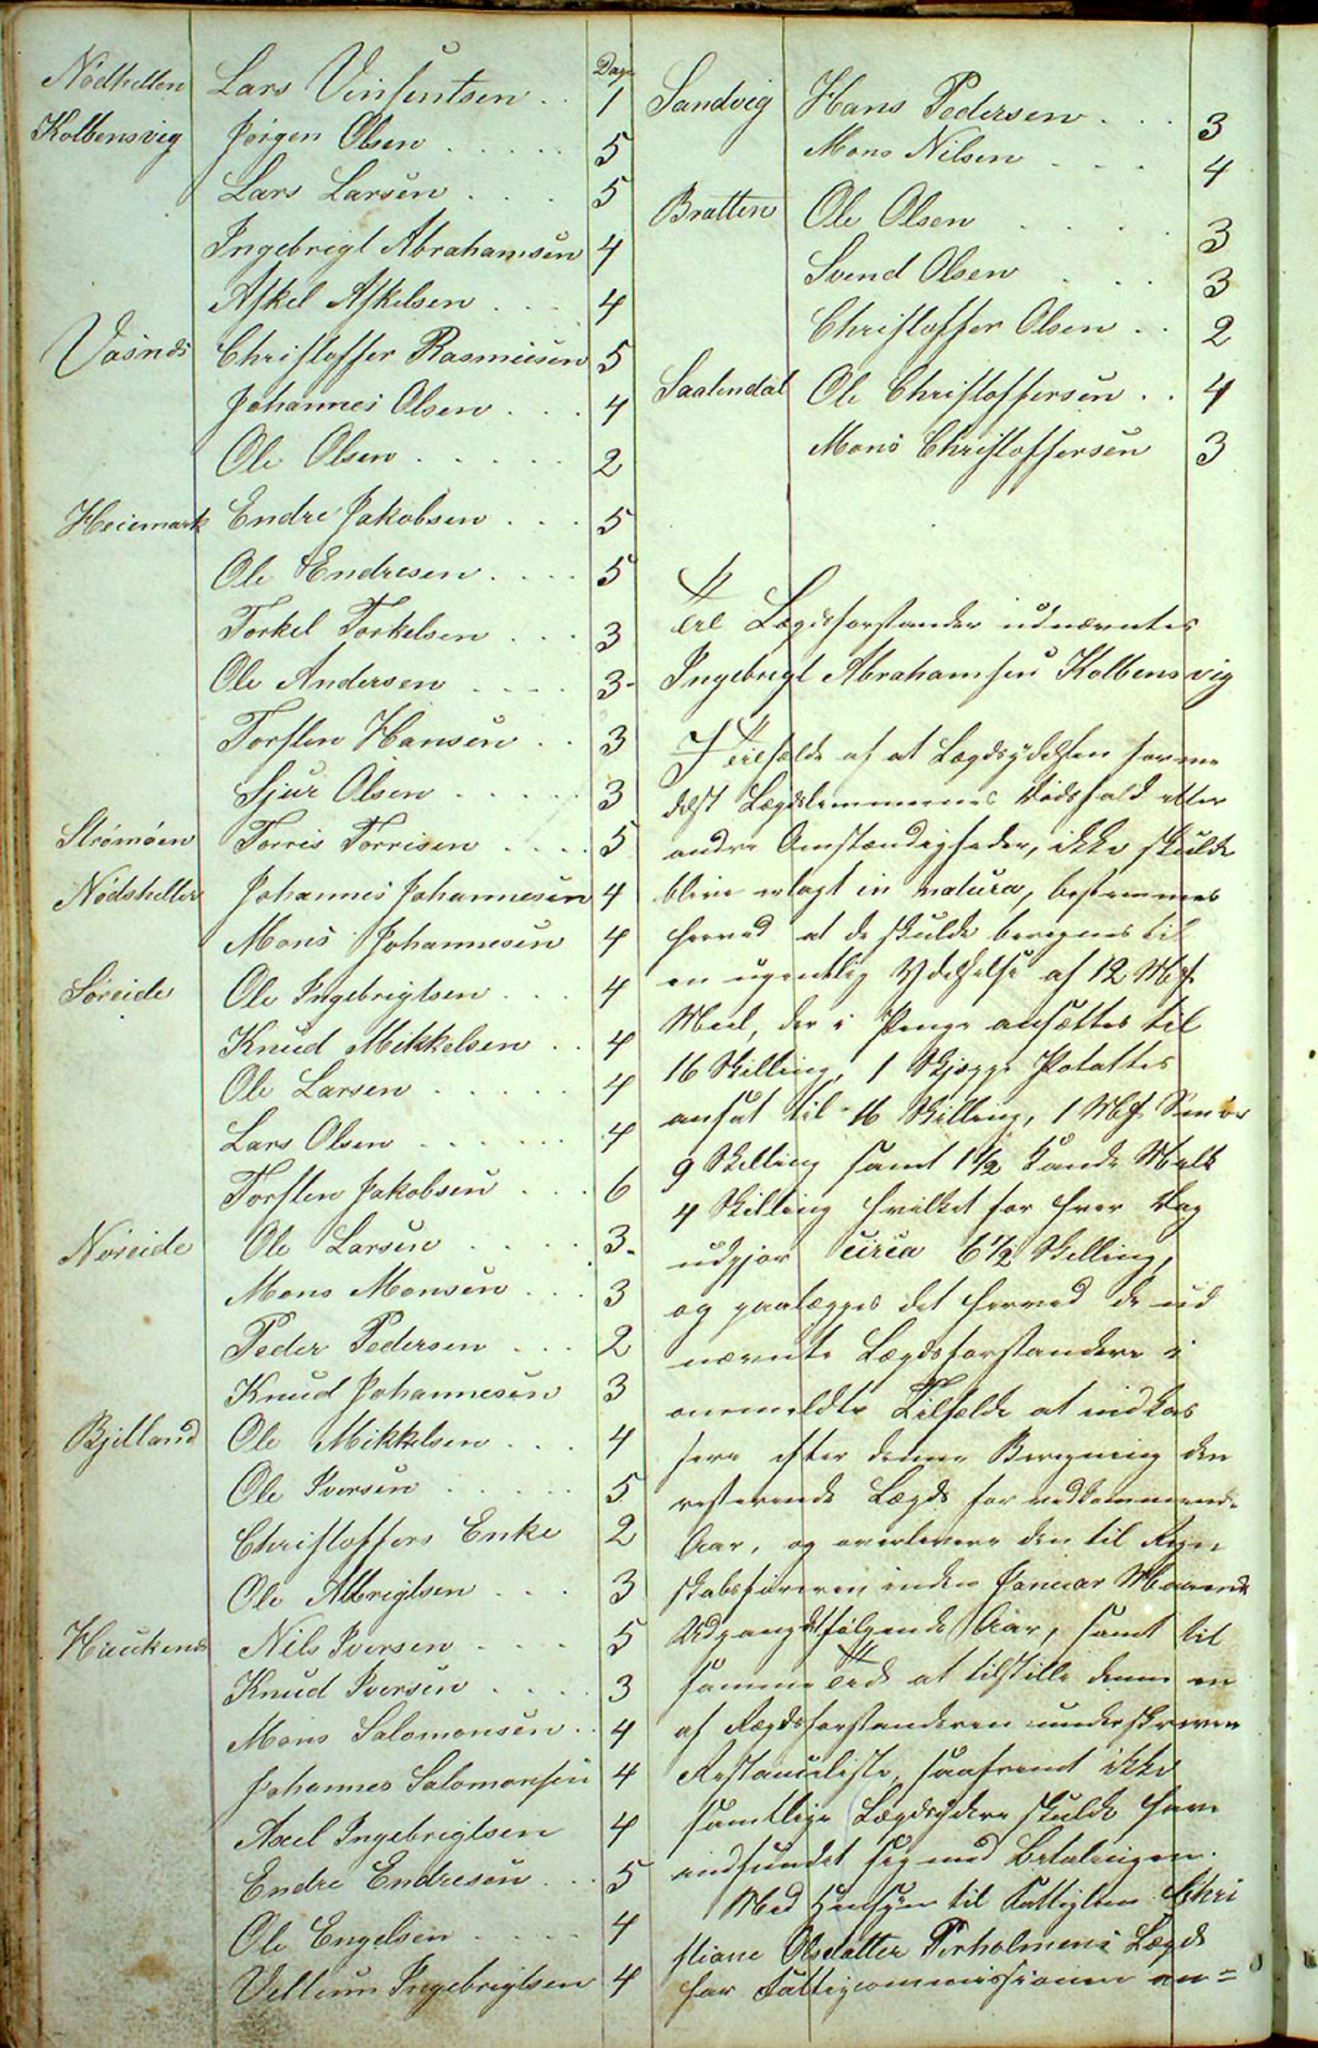 Dage
Nödhellen Lars Vinsentsen . . 1
Kolbensvig Jörgen Olsen . . . . . 5
Lars Larsen . . . . 5
Ingebrigt Abrahamsen 4
Askel Askelsen . . . 4
Vasnes Christoffer Rasmusen 5
Johannes Olsen . . . 4
Ole Olsen . . . . . 2
Heiemark Endre Jakobsen . . . 5
Ole Endresen . . . . 5
Torkel Torkelsen . . . 3
Ole Andersen . . . . 3
Torsten Hansen . . 3
Sjur Olsen . . . . . 3
Strömöen Torris Torrisen . . . . 5
Nödshellen Johannes Johannesen 4
Mons Johannesen 4
Söreide Ole Ingebrigtsen . . . 4
Knud Mikkelsen . . 4
Ole Larsen . . . . . 4
Lars Olsen . . . . . . 4
Torsten Jakobsen . . . 6
Nöreide Ole Larsen . . . . . 3
Mons Monsen . . . 3
Peder Pedersen . . . 2
Knud Johannesen 3
Bjelland Ole Mikkelsen . . . 4
Ole Iversen . . . . . 5
Christoffers Enke 2
Ole Albrigtsen . . . 3
Haukenes Nils Iversen . . . . 5
Knud Iversen . . . . 3
Mons Salomonsen . . 4
Johannes Salomonsen 4
Axel Ingebrigtsen 4
Endre Endresen . . . 5
Ole Engelsen . . . . . 4
Vellum Ingebrigtsen 4
Sandvig Hans Pedersen . . . 3
Mons Nilsen . . . 4
Bratten Ole Olsen . . . . 3
Svend Olsen . . . 3
Christoffer Olsen . . 2
Saalendal Ole Christoffersen . . 4
Mons Christoffersen 3
Til Lægdsforstander udnævntes
Ingebrigt Abrahamsen Kolbensvig
I Tilfælde af at Lægdsydelsen forme
delst Lægdslemmernes Dödsfald eller
andre Omstændigheder, ikke skulde
blive erlagt in natura, bestemmes
herved at de skulde beregnes til
en ugentlig Ydelse af 12 Mk
Meel, der i Penge ansættes til
16 Skilling, 1 Skjeppe Potattes
ansat til 16 Skilling, 1 Mk Smör
9 Skilling samt 1 1/2 Kande Melk
4 Skilling hvilket for hver Dag
udgjör circa 6 1/2 Skilling,
og paalægges det herved de ud
nævnte Lægdsforstandere i
anmeldte Tilfælde at indkas
sere efter denne Beregning den
resterende Lægd for vedkommende
Aar, og overlevere den til Regn
skabsföreren inden Januar Maaneds
Udgang Aar, samt til
samme Tid at tilstille denne en
af Lægdsforstanderen underskreven
Restanceliste, saafremt ikke
samtlige Lægdsydere skulde have
indfundet sig med Betalingen.
Med Hensyn til Fattiglem Chri
stiane Olsdatter Porholmens Lægd
har Fattigcommissionen an=